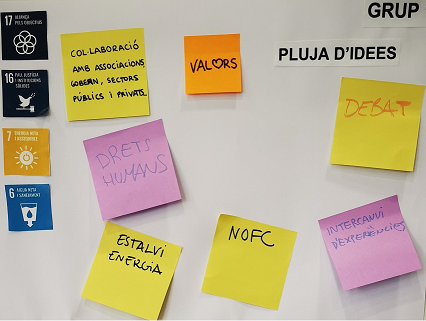 GRUP
PLUJA D'IDEES
17 ALIANÇA
PELS OBJECTIUS
16 PAU, JUSTÍCIA
I INSTITUCIONS
SÒLIDES
7 ENERGIA NETA
I ASSEQUIBLE
6 AIGUA NETA I
SANEJAMENT
COL·LABORACIÓ
AMB ASSOCIACIONS,
GOBERN, SECTORS
PÚBLICS I PRIVATS.
VALORS
DEBAT
DRETS
HUMANS
ESTALVI
ENERGIA
NOFC
INTERCANVI
D'EXPERIÈNCIES